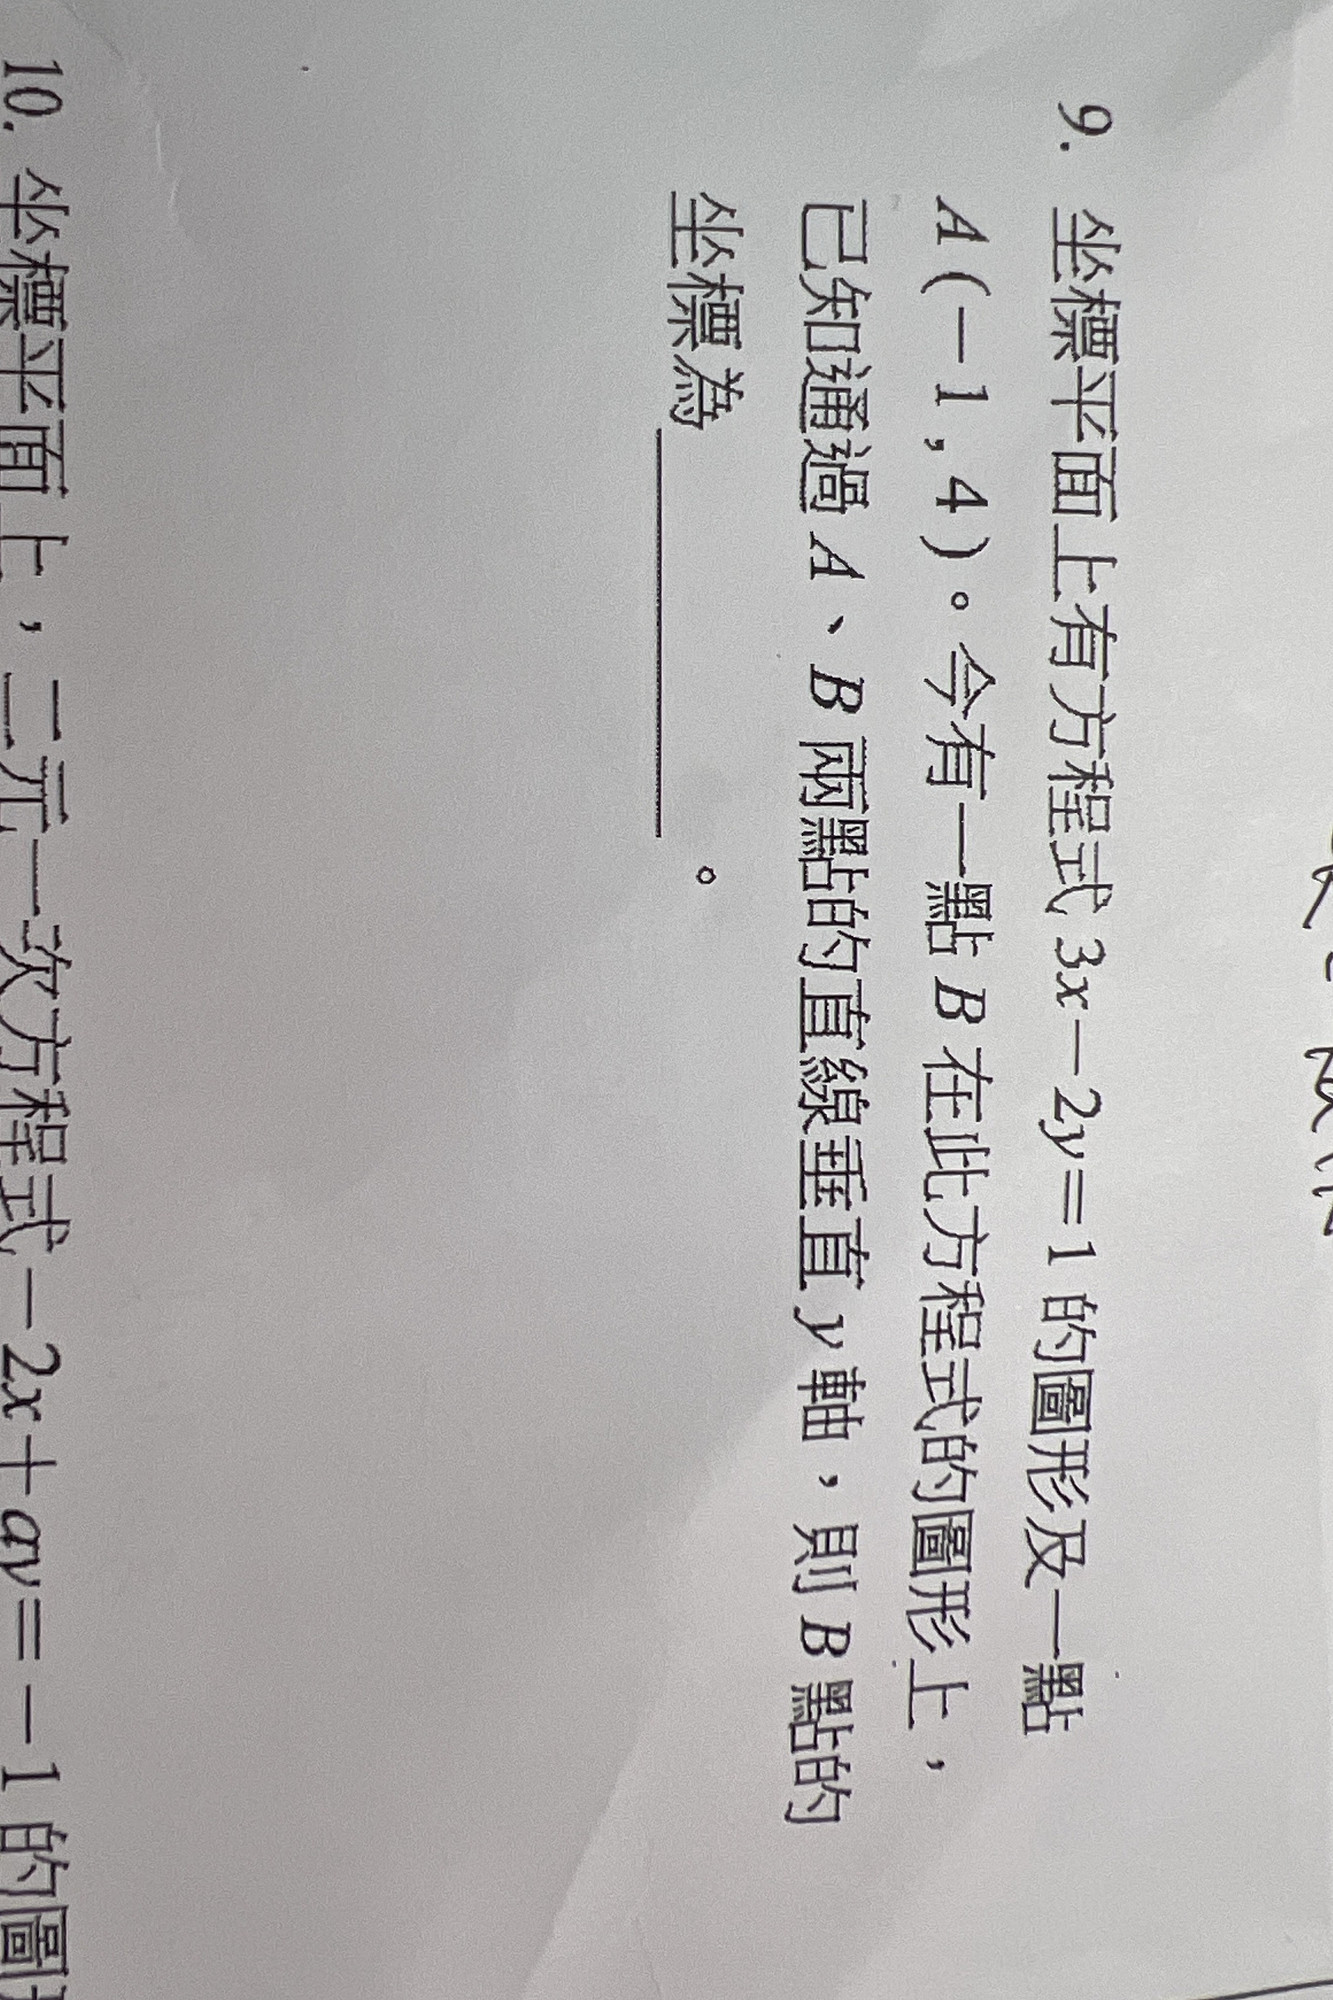 9. 坐標平面上有方程式 3x－2y＝1 的圖形及一點
A (－1 , 4)。今有一點 B 在此方程式的圖形上，
已知通過 A、B 兩點的直線垂直 y 軸，則 B 點的
坐標為＿＿＿＿＿。
10. 坐標平面上，二元一次方程式－2x＋ay＝－1 的圖